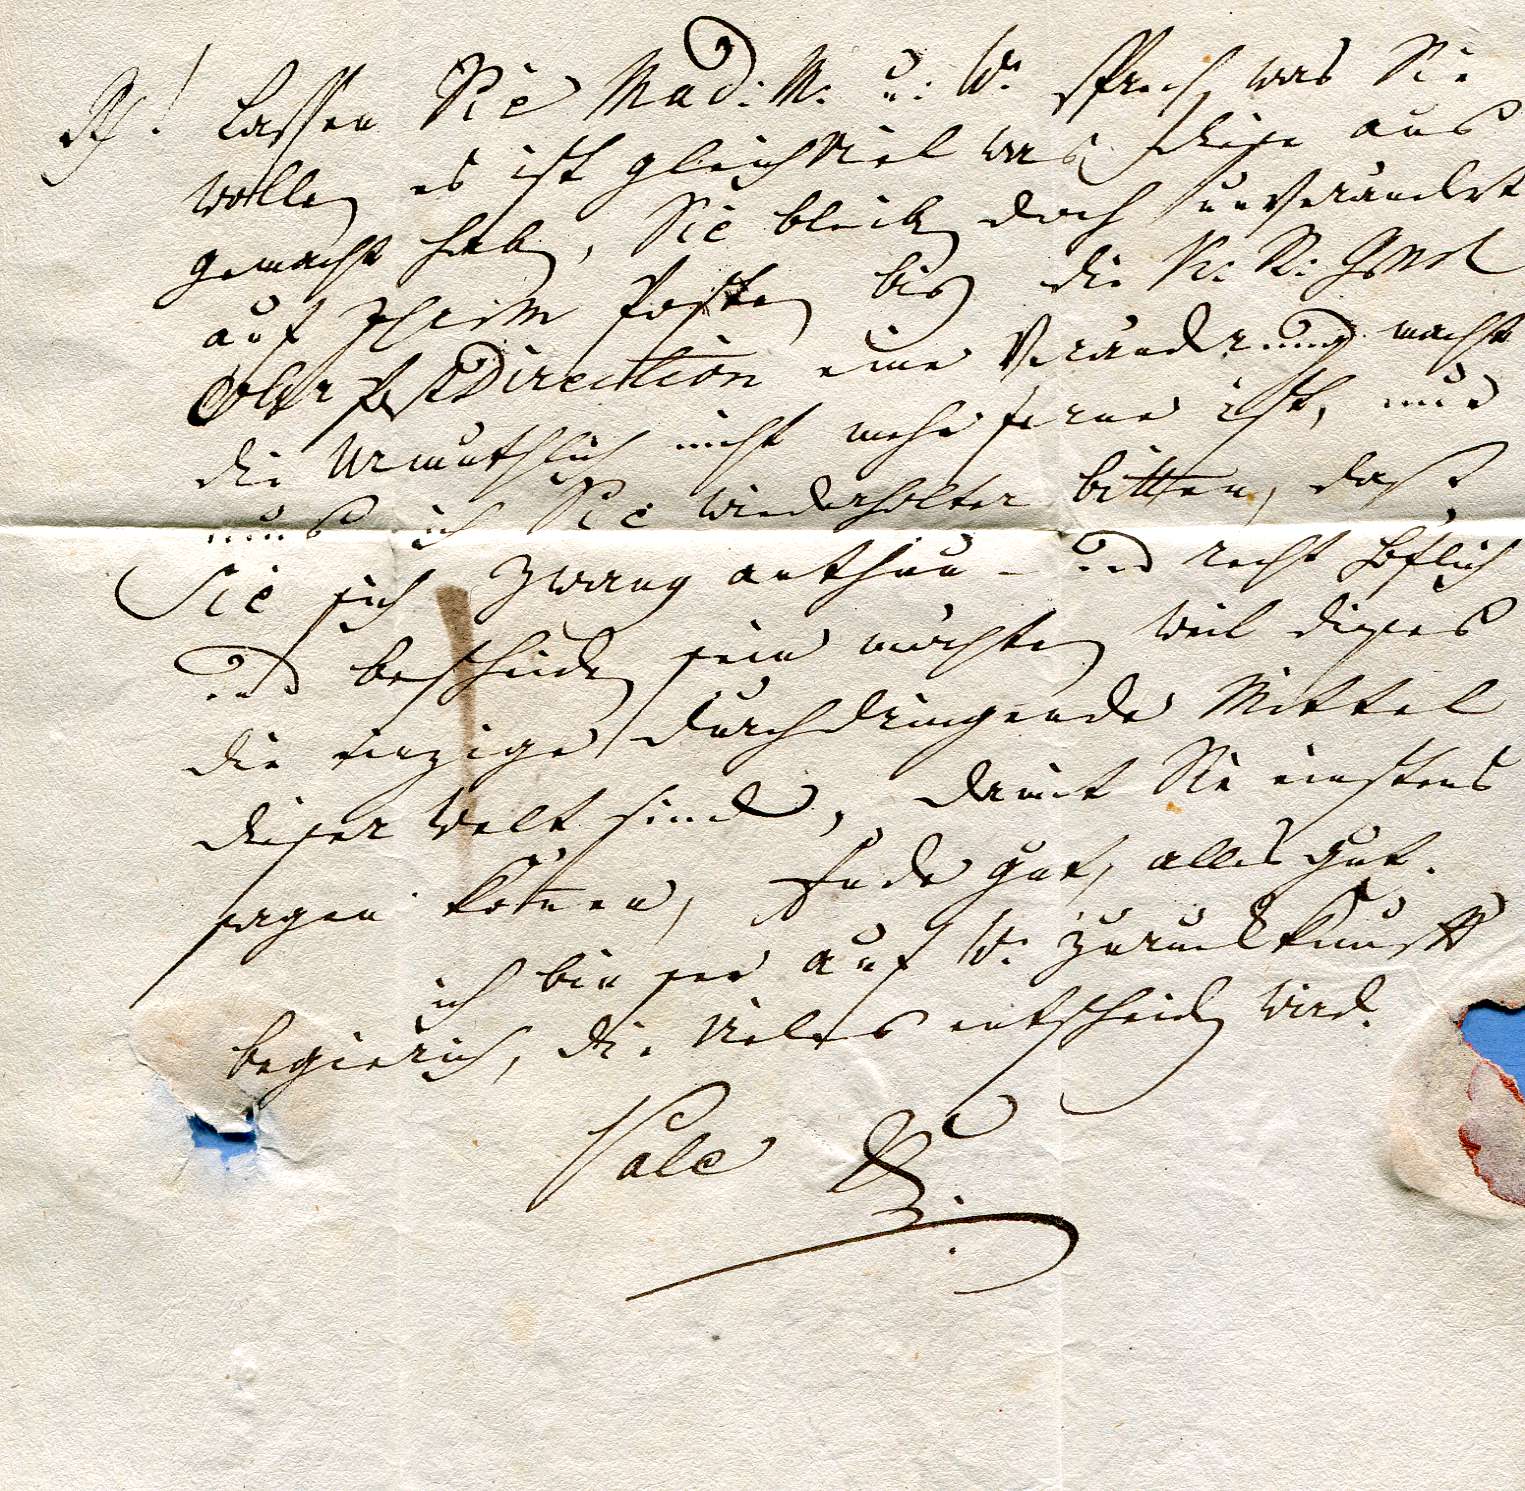 Lassen Sie Mad: M: u: W: sprech, was Sie
wollen es ist gleichviel was diese aus
gemacht haben, Sie bleiben doch unverändert
auf Ihrem Posten bis die K: K:
Ober Post Direction eine Veränderung macht
die vermuthlich nicht mehr ferne ist, nur
muß ich Sie wiederholter bitten, daß
Sie sich Zwang anthun – und recht höflich
und bescheiden sein möchten weil dieses
die einzige durchdringende Mittel
dieser Welt sind, damit Sie einstens
sagen können, Ende gut, alles gut.
ich bin ser auf W: Zurückkunft
begierich, die vieles entscheiden wird.
Vale